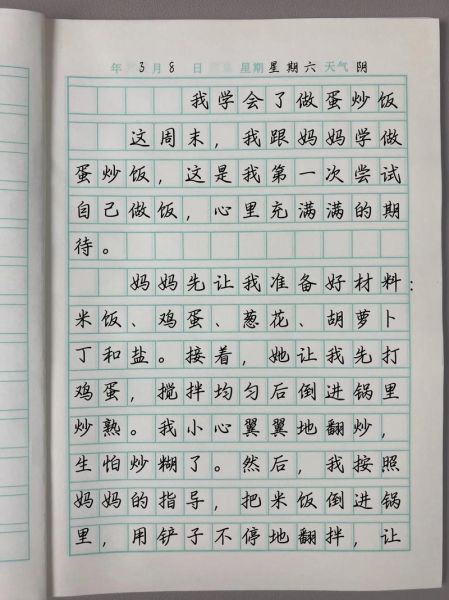 年 3月8日 星期星期六天气阴
我学会了做蛋炒饭
这周末，我跟妈妈学做
蛋炒饭，这是我第一次尝试
自己做饭，心里充满满的期
待。
妈妈先让我准备好材料：
米饭、鸡蛋、葱花、胡萝卜
丁和盐。接着，她让我先打
鸡蛋，搅拌均匀后倒进锅里
炒熟。我小心翼翼地翻炒，
生怕炒糊了。然后，我按照
妈妈的指导，把米饭倒进锅
里，用铲子不停地翻拌，让